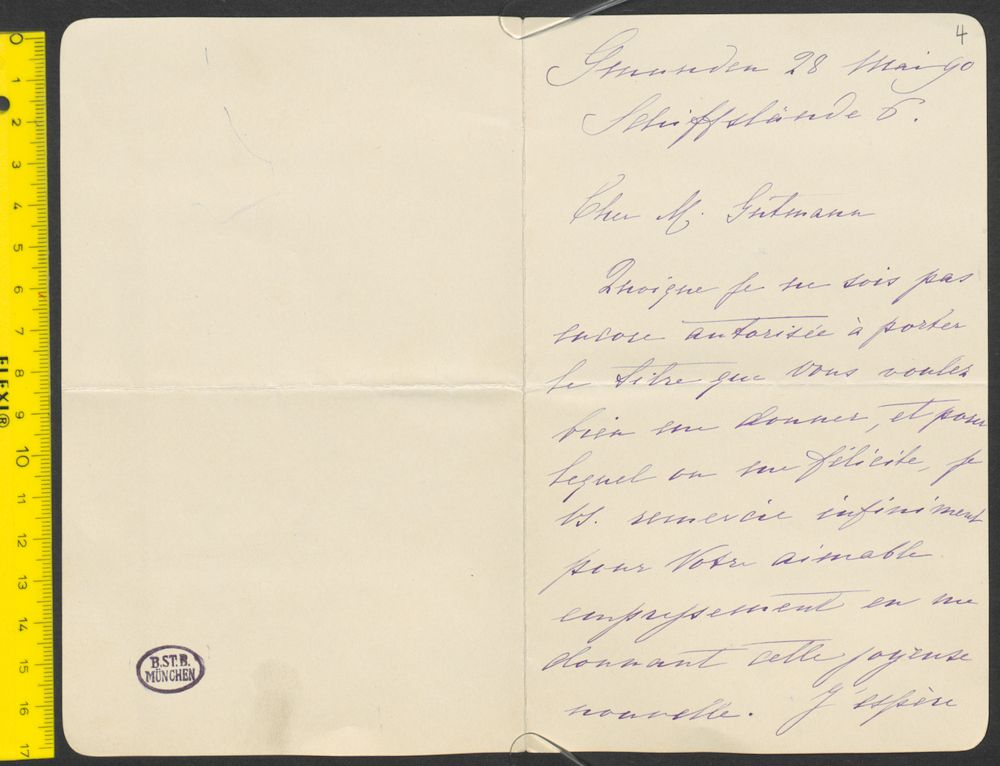 4
Gmunden 28 Mai 90
Schifflände 6.
Cher M. Gutmann
Quoique je ne sois pas
encore autorisée à porter
le titre que Vous voulez
bien me donner, et pour
lequel on me félicite, je
Vs. remercie infiniment
pour Votre aimable
empressement en me
donnant cette joyeuse
nouvelle. J'espère
B.ST.B.
MÜNCHEN
FLEXI®
0 1 2 3 4 5 6 7 8 9 10 11 12 13 14 15 16 17